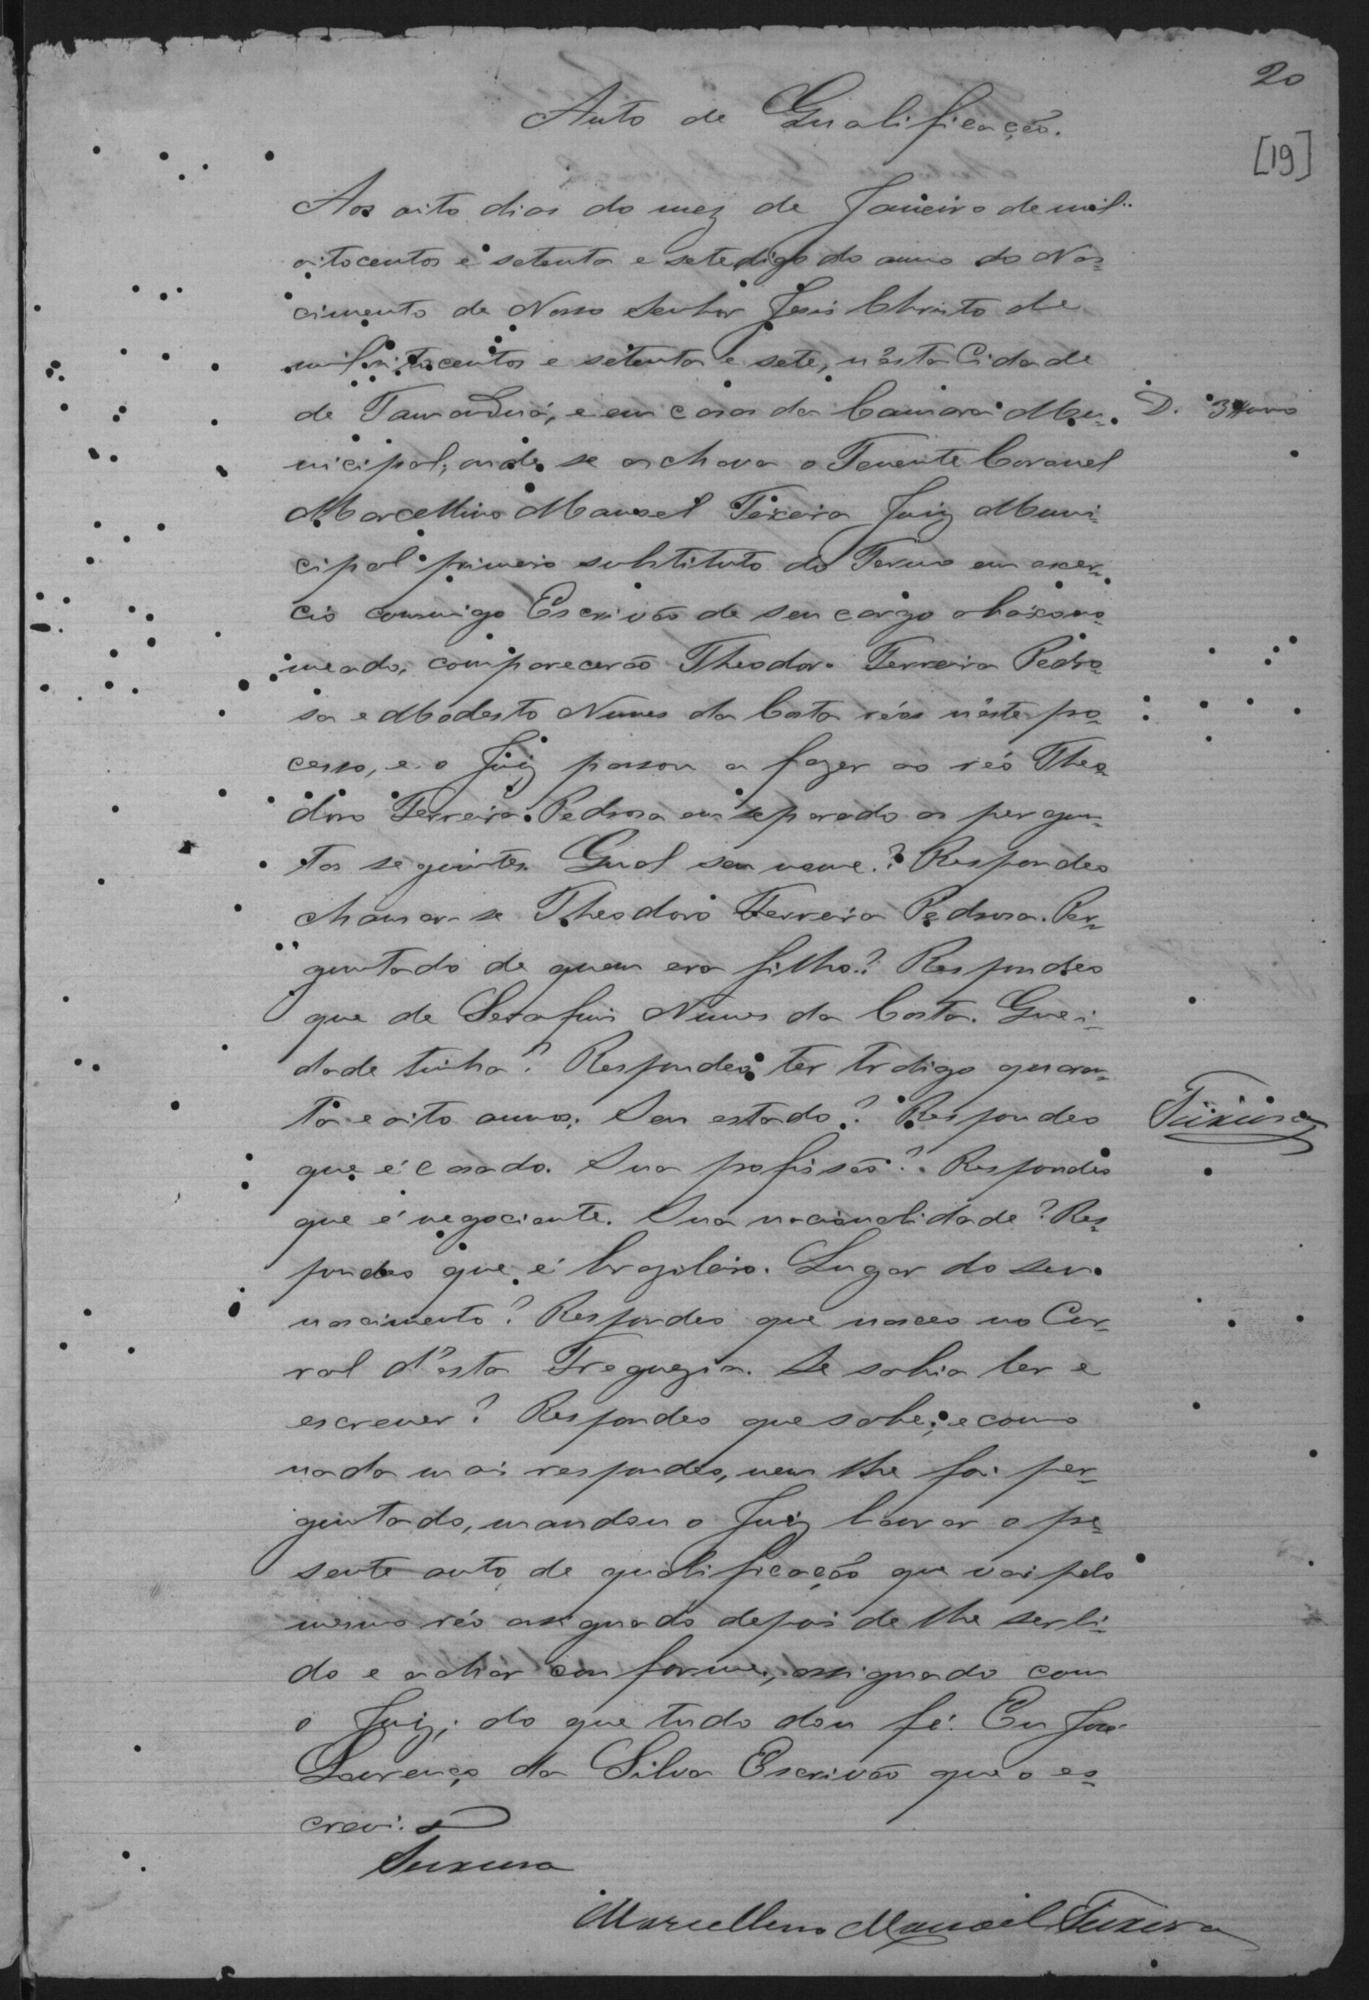 20
[19]
Auto de Qualificação.
Aos oito dias do mez de Janeiro de mil
oitocentos e setenta e sete digo do anno do Nas-
cimento de Nosso Senhor Jesus Christo de
mil oitocentos e setenta e sete, n'esta Cidade
de Tamanduá, e em casa da Camara Mu-
D. 3
nicipal, onde se achava o Tenente Coronel
Marcellino Manoel Teixeira Juiz Muni-
cipal primeiro substituto do Termo em exer-
cio commigo Escrivão de seu cargo abaixo no-
meado, comparecerão Theodoro Ferreira Pedro-
sa e Modesto Nunes da Costa réos n'este pro-
cesso, e o Juiz passou a fazer ao réo Theo-
doro Ferreira Pedrosa em separado as pergun-
tas seguintes. Qual seu nome? Respondeo
chamar-se Theodoro Ferreira Pedrosa. Per-
guntado de quem era filho? Respondeo
que de Serafim Nunes da Costa. Que i-
dade tinha? Respondeo ter tr digo quaren-
ta e oito annos. Seu estado? Respondeo
Teixeira
que é casado. Sua profissão? Respondeo
que é negociante. Sua nacionalidade? Res-
pondeo que é brazileiro. Lugar do seu
nascimento? Respondeo que nasceo no Cur-
ral d'esta Freguezia. Se sabia ler e
escrever? Respondeo que sabe; e como
nada mais respondeo, nem lhe foi per-
guntado, mandou o Juiz lavrar o pre-
sente auto de qualificação que vai pelo
mesmo réo assignado depois de lhe ser li-
do e achar conforme, assignado com
o Juiz; do que tudo dou fé. Eu José
Lourenço da Silva Escrivão que o es-
crevi.
Teixeira
Marcellino Manoel Teixeira